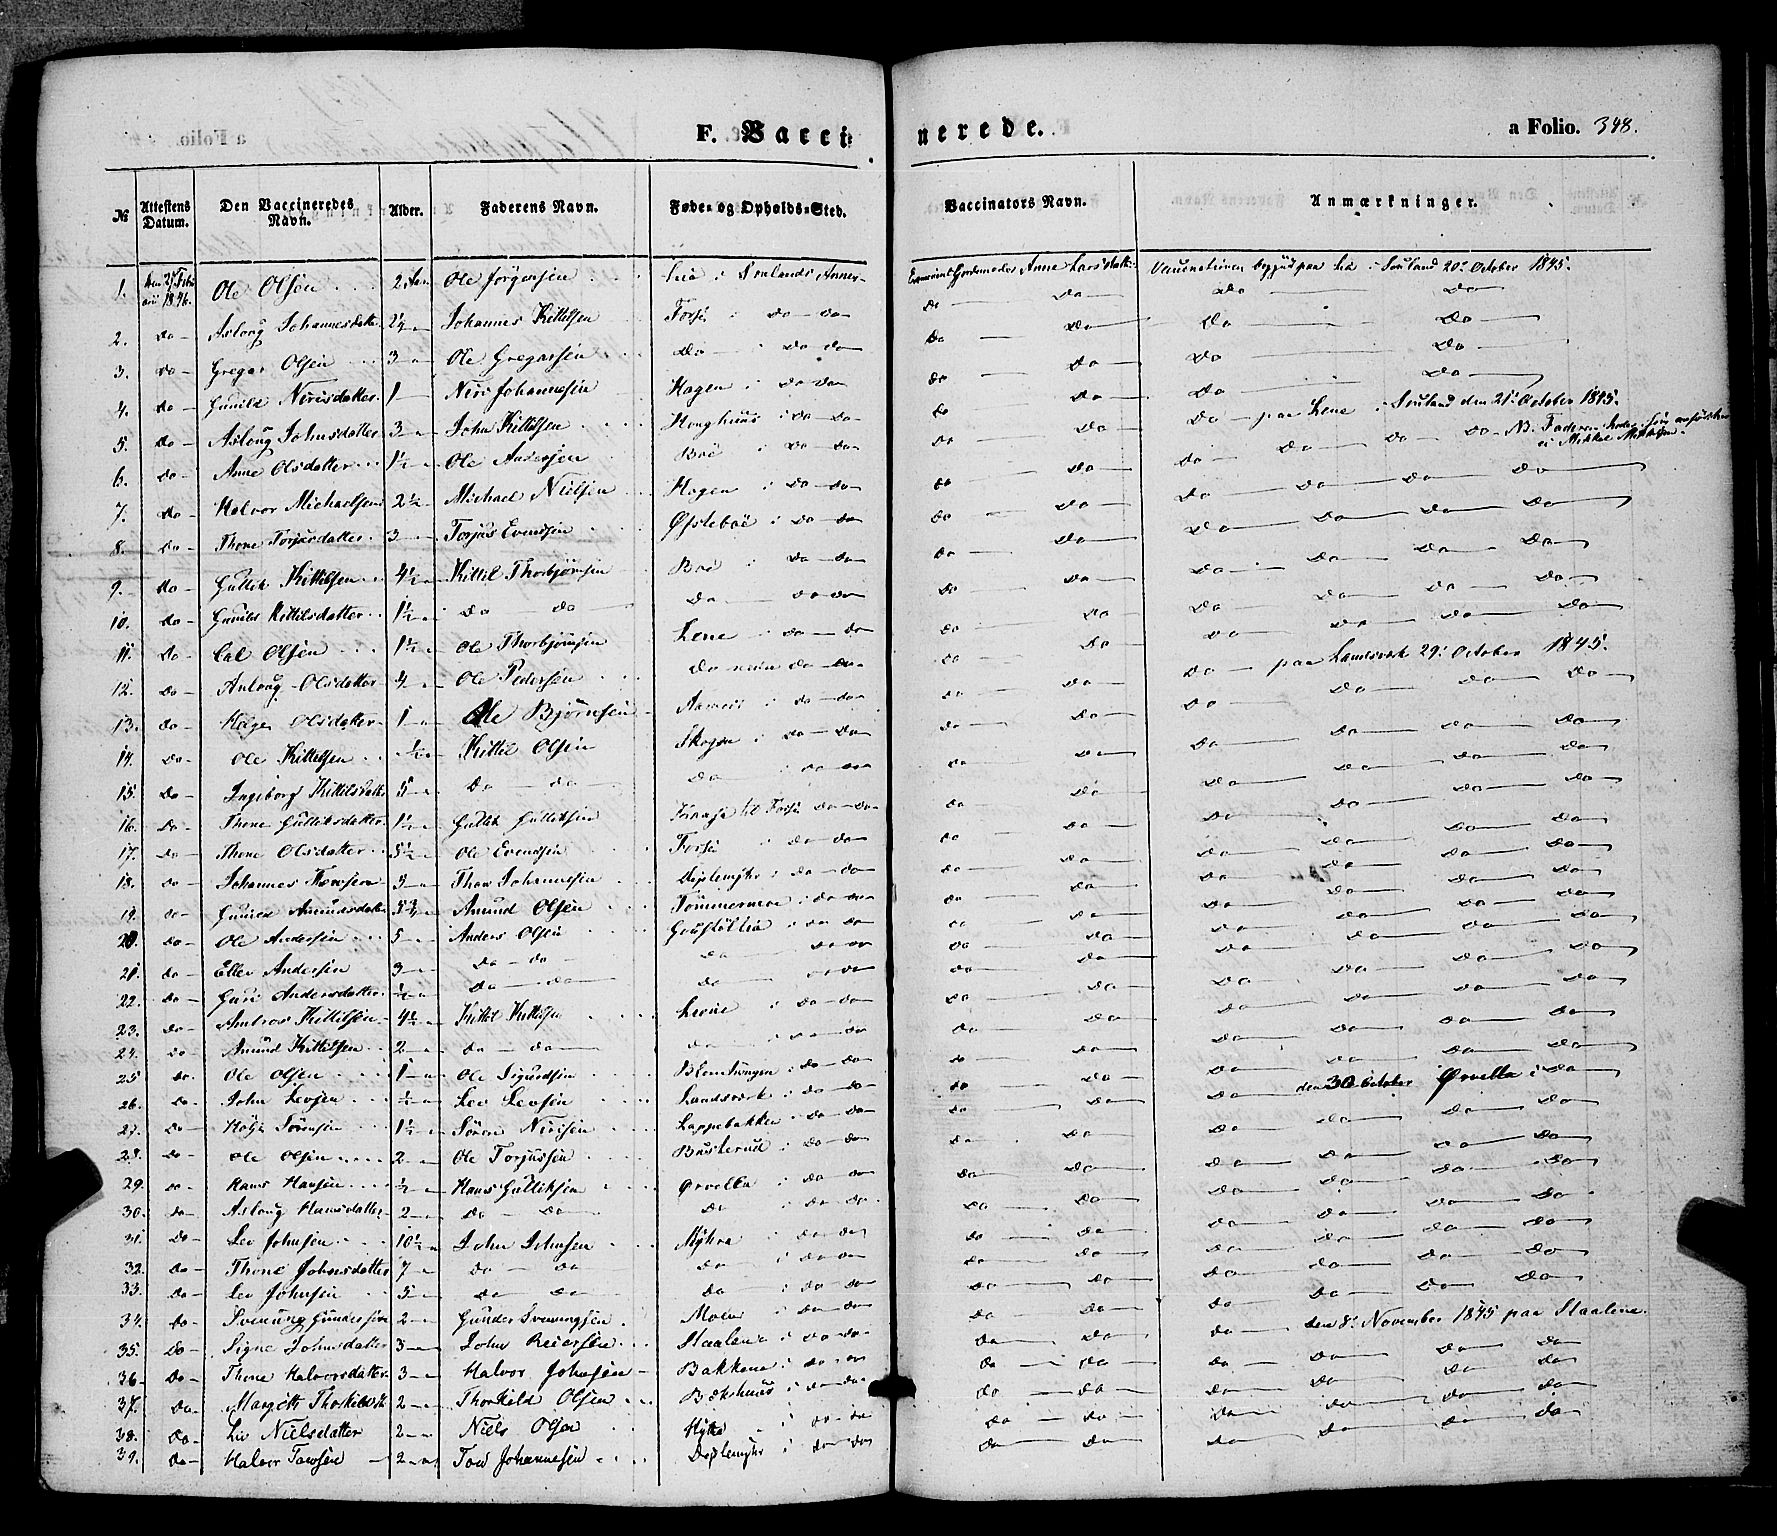 F. Vaccinerede.
a Folio. 348.
№ Attestens Datum. Den Vaccineredes Navn. Alder. Faderens Navn. Føde- og Opholds-Sted. Vaccinators Navn. Anmærkninger.
1. 1846. Ole Olsen 2 Aar Ole Jørgensen Lia i Sørlands Annex Examineret Gjordemoder Anne Larsdatter Vaccinationen begyndt paa Lia i Souland 20. October 1845.
2. Do Aslaug Johannesdatter 2½ Johannes Kittilsen Forsi i Do Do Do Do Do Do
3. Do Gregar Olsen 3 Ole Gregarsen Do i Do Do Do Do Do Do
4. Do Gunild Nirisdatter 1 Niri Johannesen Hagen i Do Do Do Do Do Do
5. Do Aslaug Johnsdatter 3 John Kittilsen Honghuus i Do Do Do Do Do Do
6. Do Anne Olsdatter 1½ Ole Andersen Boe i Do Do Do Do Do paa Lene i Souland den 21. October 1845.
7. Do Halvor Michaelsen 2½ Michael Nielsen Hagen i Do Do Do Do Do Do Do NB. Faderen
8. Do Thone Torjusdatter 3 Torjus Evendsen Øfsteboe i Do Do Do Do Do Do Do Do
9. Do Gullik Kittilsen 4½ Kittil Thorbjørnsen Boe i Do Do Do Do Do Do Do Do
10. Do Gunild Kittilsdatter 1½ Do Do Do Do Do Do Do Do Do Do Do
11. Do Olsen 1½ Ole Thorbjørnsen Lene i Do Do Do Do Do Do Do Do
12. Do Aslaug Olsdatter 4 Ole Pedersen Do Do Do Do Do Do Do Do Do
13. Do Helge Olsdatter 1 Ole Bjørnsen i Do Do Do Do Do paa Landsverk 29. October 1845.
14. Do Ole Kittilsen ½ Kittil Olsen Skogen i Do Do Do Do Do Do Do Do
15. Do Ingeborg Kittilsdatter 5 Do Do Do i Do Do Do Do Do Do Do Do
16. Do Thone Gulliksdatter 1½ Gullik Gulliksen til Forsi Do Do Do Do Do Do Do Do
17. Do Thone Olsdatter 5½ Ole Evendsen Forsi i Do Do Do Do Do Do Do Do
18. Do Johannes Thovsen 5 Thov Johannesen Deplemyhr i Do Do Do Do Do Do Do Do
19. Do Gunild Amundsdatter Amund Olsen Tømmermoe i Do Do Do Do Do Do Do Do
20. Do Ole Andersen 5 Anders Olsen Goustøllia i Do Do Do Do Do Do Do Do
21. Do Ellev Andersen 3 Do Do Do Do Do Do Do Do Do Do Do
22. Do Guri Andersdatter ½ Do Do Do Do Do Do Do Do Do Do Do
23. Do Kittilsen 4½ Kittil Kittilsen i Do Do Do Do Do Do Do Do
24. Do Amund Kittilsen 2 Do Do Do Do Do Do Do Do Do Do
25. Do Ole Olsen 1 Ole Sigurdsen i Do Do Do Do Do Do Do Do
26. Do John Levsen ½ Lev Levsen Landsverk i Do Do Do Do Do den 30 October Ørvella i Do
27. Do Sørensen 1½ Søren Nirisen Lappebakken i Do Do Do Do Do Do Do Do
28. Do Ole Olsen 2 Ole Torjussen Busterud i Do Do Do Do Do Do Do Do
29. Do Hans Hansen ½ Hans Gulliksen Ørvella i Do Do Do Do Do Do Do Do
30. Do Aslaug Hansdatter 2 Do Do Do i Do Do Do Do Do Do Do Do
31. Do Lev Johnsen 10½ John Johnsen Myhra i Do Do Do Do Do Do Do Do
32. Do Thone Johnsdatter 7 Do Do Do i Do Do Do Do Do Do Do Do
33. Do Lev Johnsen 5 Do Do Do i Do Do Do Do Do Do Do Do
34. Do Svenung Gundersen 2 Gunder Svenungsen Moen i Do Do Do Do Do Do Do Do
35. Do Signe Johnsdatter 3 John Reiersen Staalene i Do Do Do Do Do den 8. November 1845 paa Staalene.
36. Do Thone Halvorsdatter 3 Halvor Johnsen Bakkene i Do Do Do Do Do Do Do Do
37. Do Margith Thorkildsdt 2 Thorkild Olsen Bækhuus i Do Do Do Do Do Do Do Do
38. Do Liv Nielsdatter 2 Niels Olsen Hytta i Do Do Do Do Do Do Do Do
39. Do Halvor Tovsen 2 Tov Johannesen Deplemyhr i Do Do Do Do Do Do Do Do